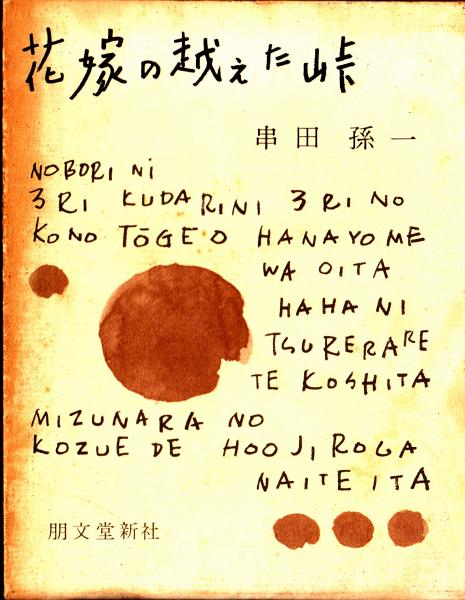 花嫁の越えた峠
串田孫一
NOBORI NI
3 RI KUDARINI 3 RI NO
KONO TŌGE O HANAYOME
WA OITA
HAHA NI
TSURERARE
TE KOSHITA
MIZUNARA NO
KOZUE DE HOOJIROGA
NAITE ITA
朋文堂新社